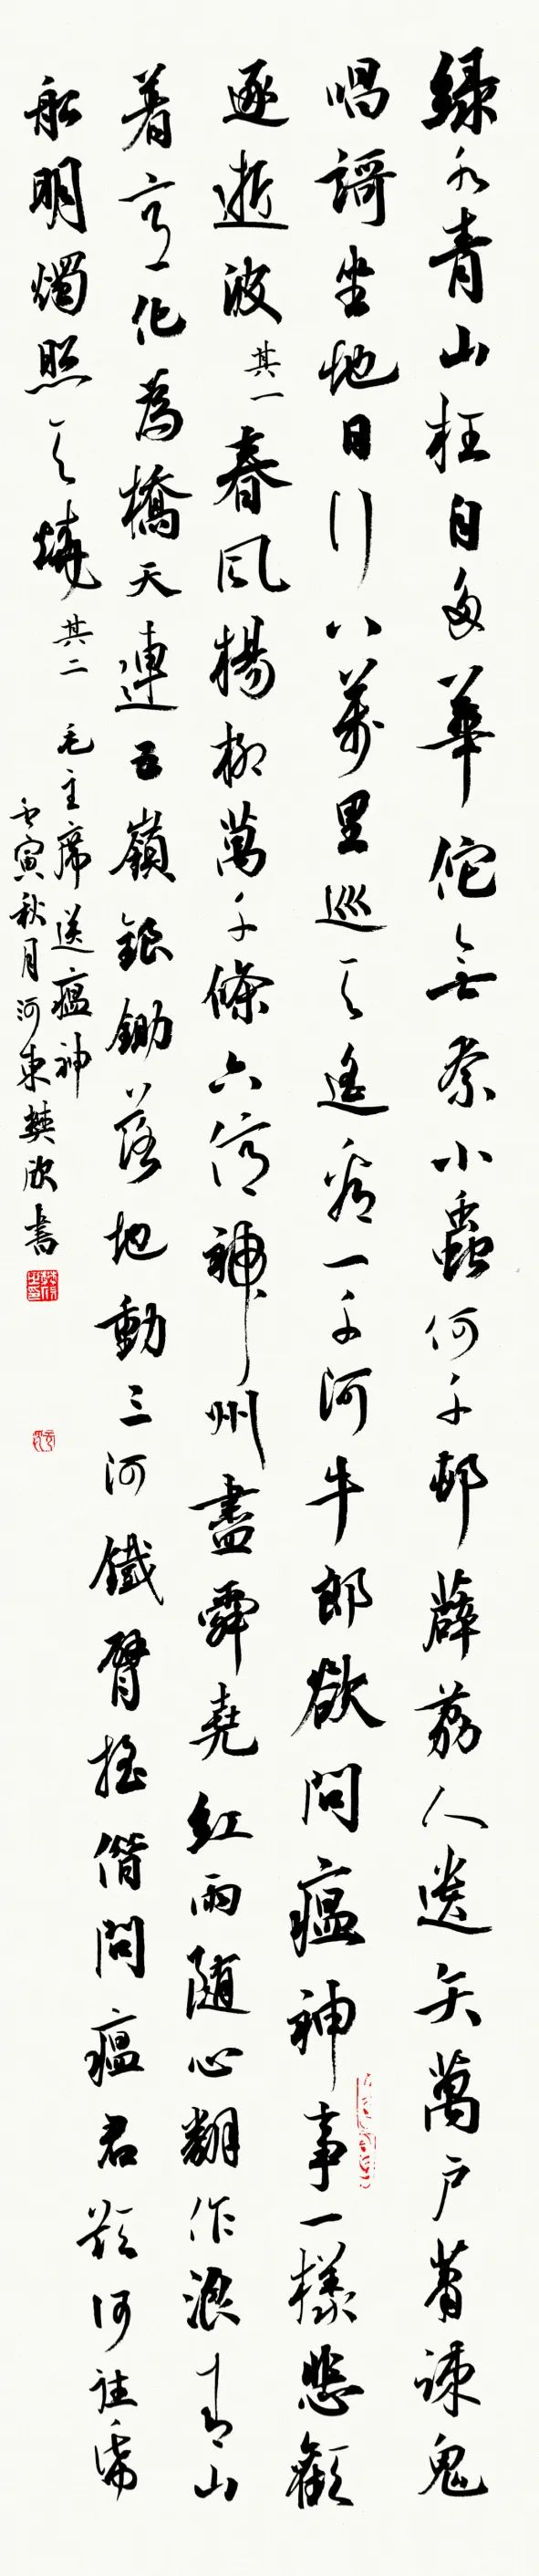 緑水青山枉自多華佗無奈小蟲何千邨薜荔人遺矢萬户蕭疎鬼
唱謌坐地日行八萬里巡天遥看一千河牛郎欲問瘟神事一樣悲歡
逐逝波其一春風楊柳萬千條六億神州盡舜堯紅雨随心翻作浪青山
着意化為橋天連五嶺銀鋤落地動三河鐵臂摇借問瘟君欲何往紙
船明燭照天燒其二毛主席送瘟神
壬寅秋月河東樊欣書